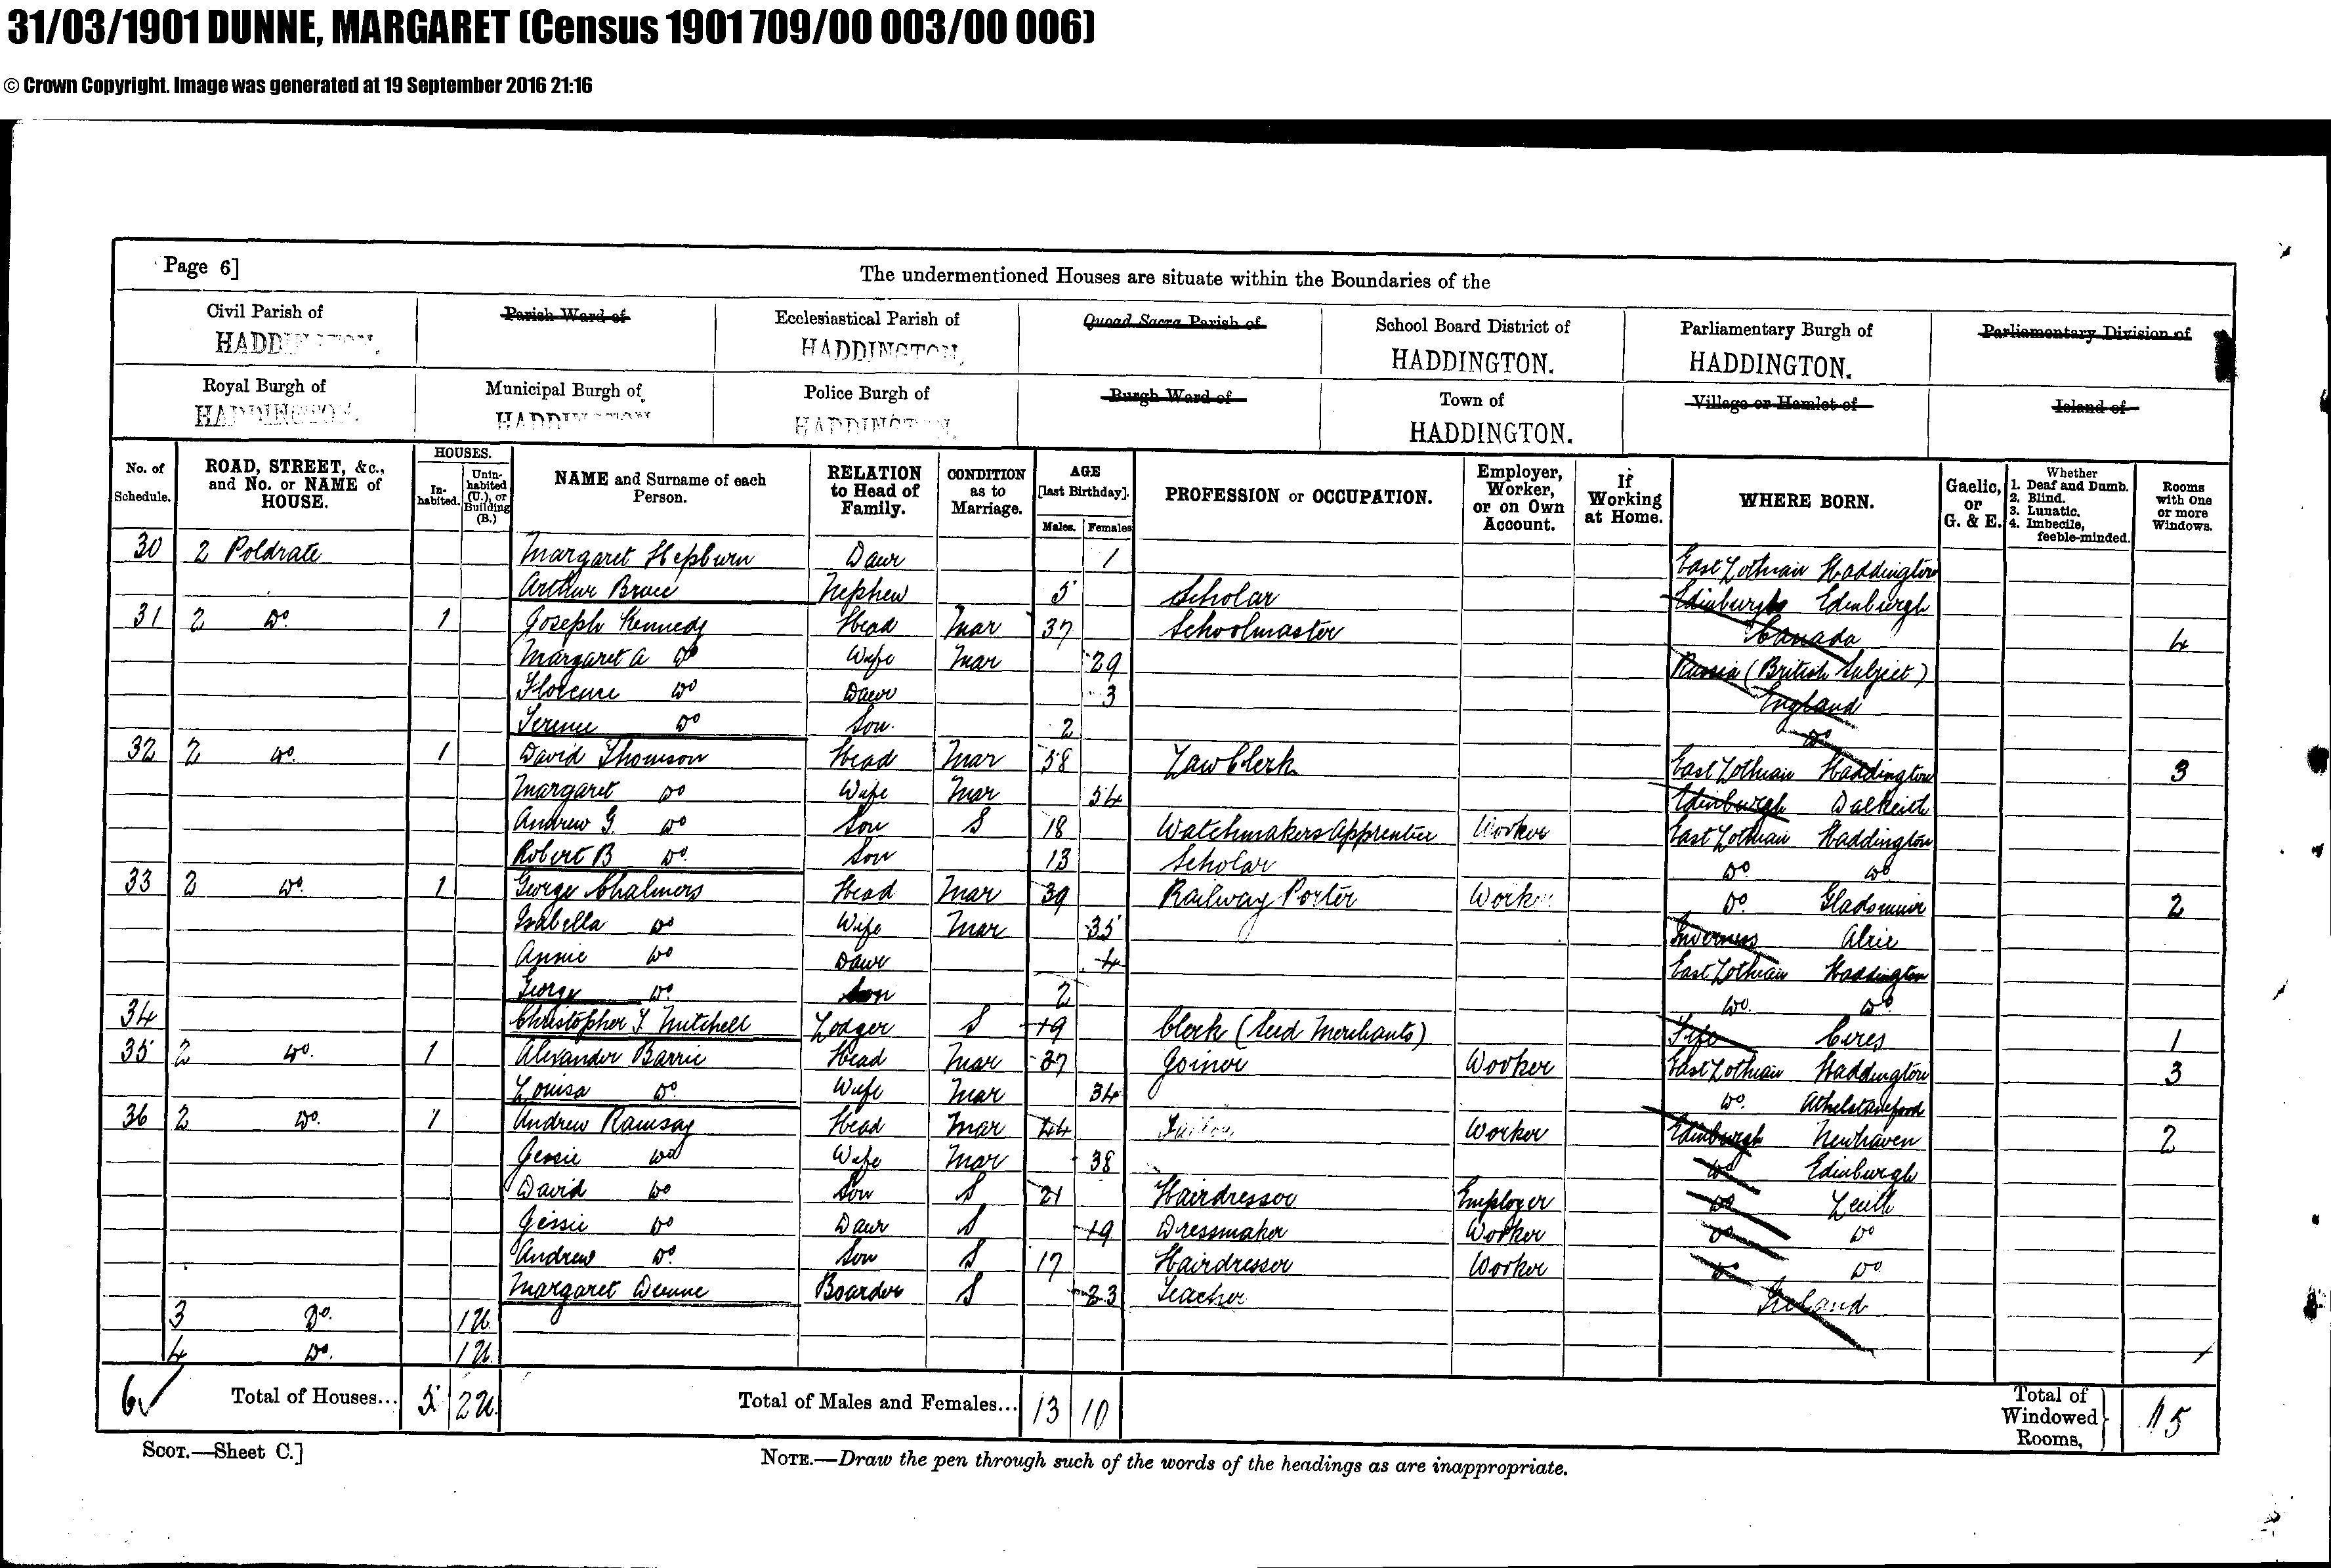 31/03/1901 DUNNE, MARGARET (Census 1901 709/00 003/00 006)
© Crown Copyright. Image was generated at 19 September 2016 21:16
Page 6]
The undermentioned Houses are situate within the Boundaries of the
Civil Parish of Parish Ward of Ecclesiastical Parish of Quoad Sacra Parish of School Board District of Parliamentary Burgh of Parliamentary Division of
HADDINGTON. HADDINGTON. HADDINGTON. HADDINGTON.
Royal Burgh of Municipal Burgh of Police Burgh of Burgh Ward of Town of Village or Hamlet of Island of
HADDINGTON. HADDINGTON HADDINGTON. HADDINGTON.
No. of Schedule. ROAD, STREET, &c., and No. or NAME of HOUSE. HOUSES. Inhabited. Uninhabited (U.), or Building (B.) NAME and Surname of each Person. RELATION to Head of Family. CONDITION as to Marriage. AGE [last Birthday]. Males. Females PROFESSION or OCCUPATION. Employer, Worker, or on Own Account. If Working at Home. WHERE BORN. Gaelic, or G. & E. Whether 1. Deaf and Dumb. 2. Blind. 3. Lunatic. 4. Imbecile, feeble-minded. Rooms with One or more Windows.
30 2 Poldrate Margaret Hepburn Daur 1 East Lothian Haddington
Arthur Bruce Nephew 5 Scholar Edinburgh Edinburgh
31 2 Do. 1 Joseph Kennedy Head Mar 37 Schoolmaster Canada 4
Margaret A Do Wife Mar 29 Russia (British Subject)
Florence Do Daur 3 England
Terence Do Son. 2 Do
32 2 Do. 1 David Thomson Head Mar 58 Law Clerk East Lothian Haddington 3
Margaret Do Wife Mar 54 Edinburgh Dalkeith
Andrew G. Do Son S 18 Watchmakers Apprentice Worker East Lothian Haddington
Robert B Do. Son 13 Scholar Do Do
33 2 Do. 1 George Chalmers Head Mar 39 Railway Porter Worker Do. Gladsmuir 2
Isabella Do Wife Mar 35 Inverness Alvie
Annie Do Daur 4 East Lothian Haddington
George Do. Son 2 Do. Do.
34 Christopher T. Mitchell Lodger S 19 Clerk (Seed Merchants) Fife Ceres 1
35 2 Do. 1 Alexander Barrie Head Mar 37 Joiner Worker East Lothian Haddington 3
Louisa Do. Wife Mar 34 Do. Athelstaneford
36 2 Do. 1 Andrew Ramsay Head Mar 44 Worker Edinburgh Newhaven 2
Jessie Do Wife Mar 38 Do Edinburgh
David Do Son S 21 Hairdresser Employer Do Leith
Jessie Do Daur S 19 Dressmaker Worker Do Do
Andrew Do. Son S 17 Hairdresser Worker Do Do
Margaret Dunne Boarder S 23 Teacher Ireland
3 Do. 1U.
4 Do. 1U.
6 Total of Houses... 5 2U. Total of Males and Females... 13 10 Total of Windowed Rooms, 15
SCOT.—Sheet C.]
NOTE.—Draw the pen through such of the words of the headings as are inappropriate.